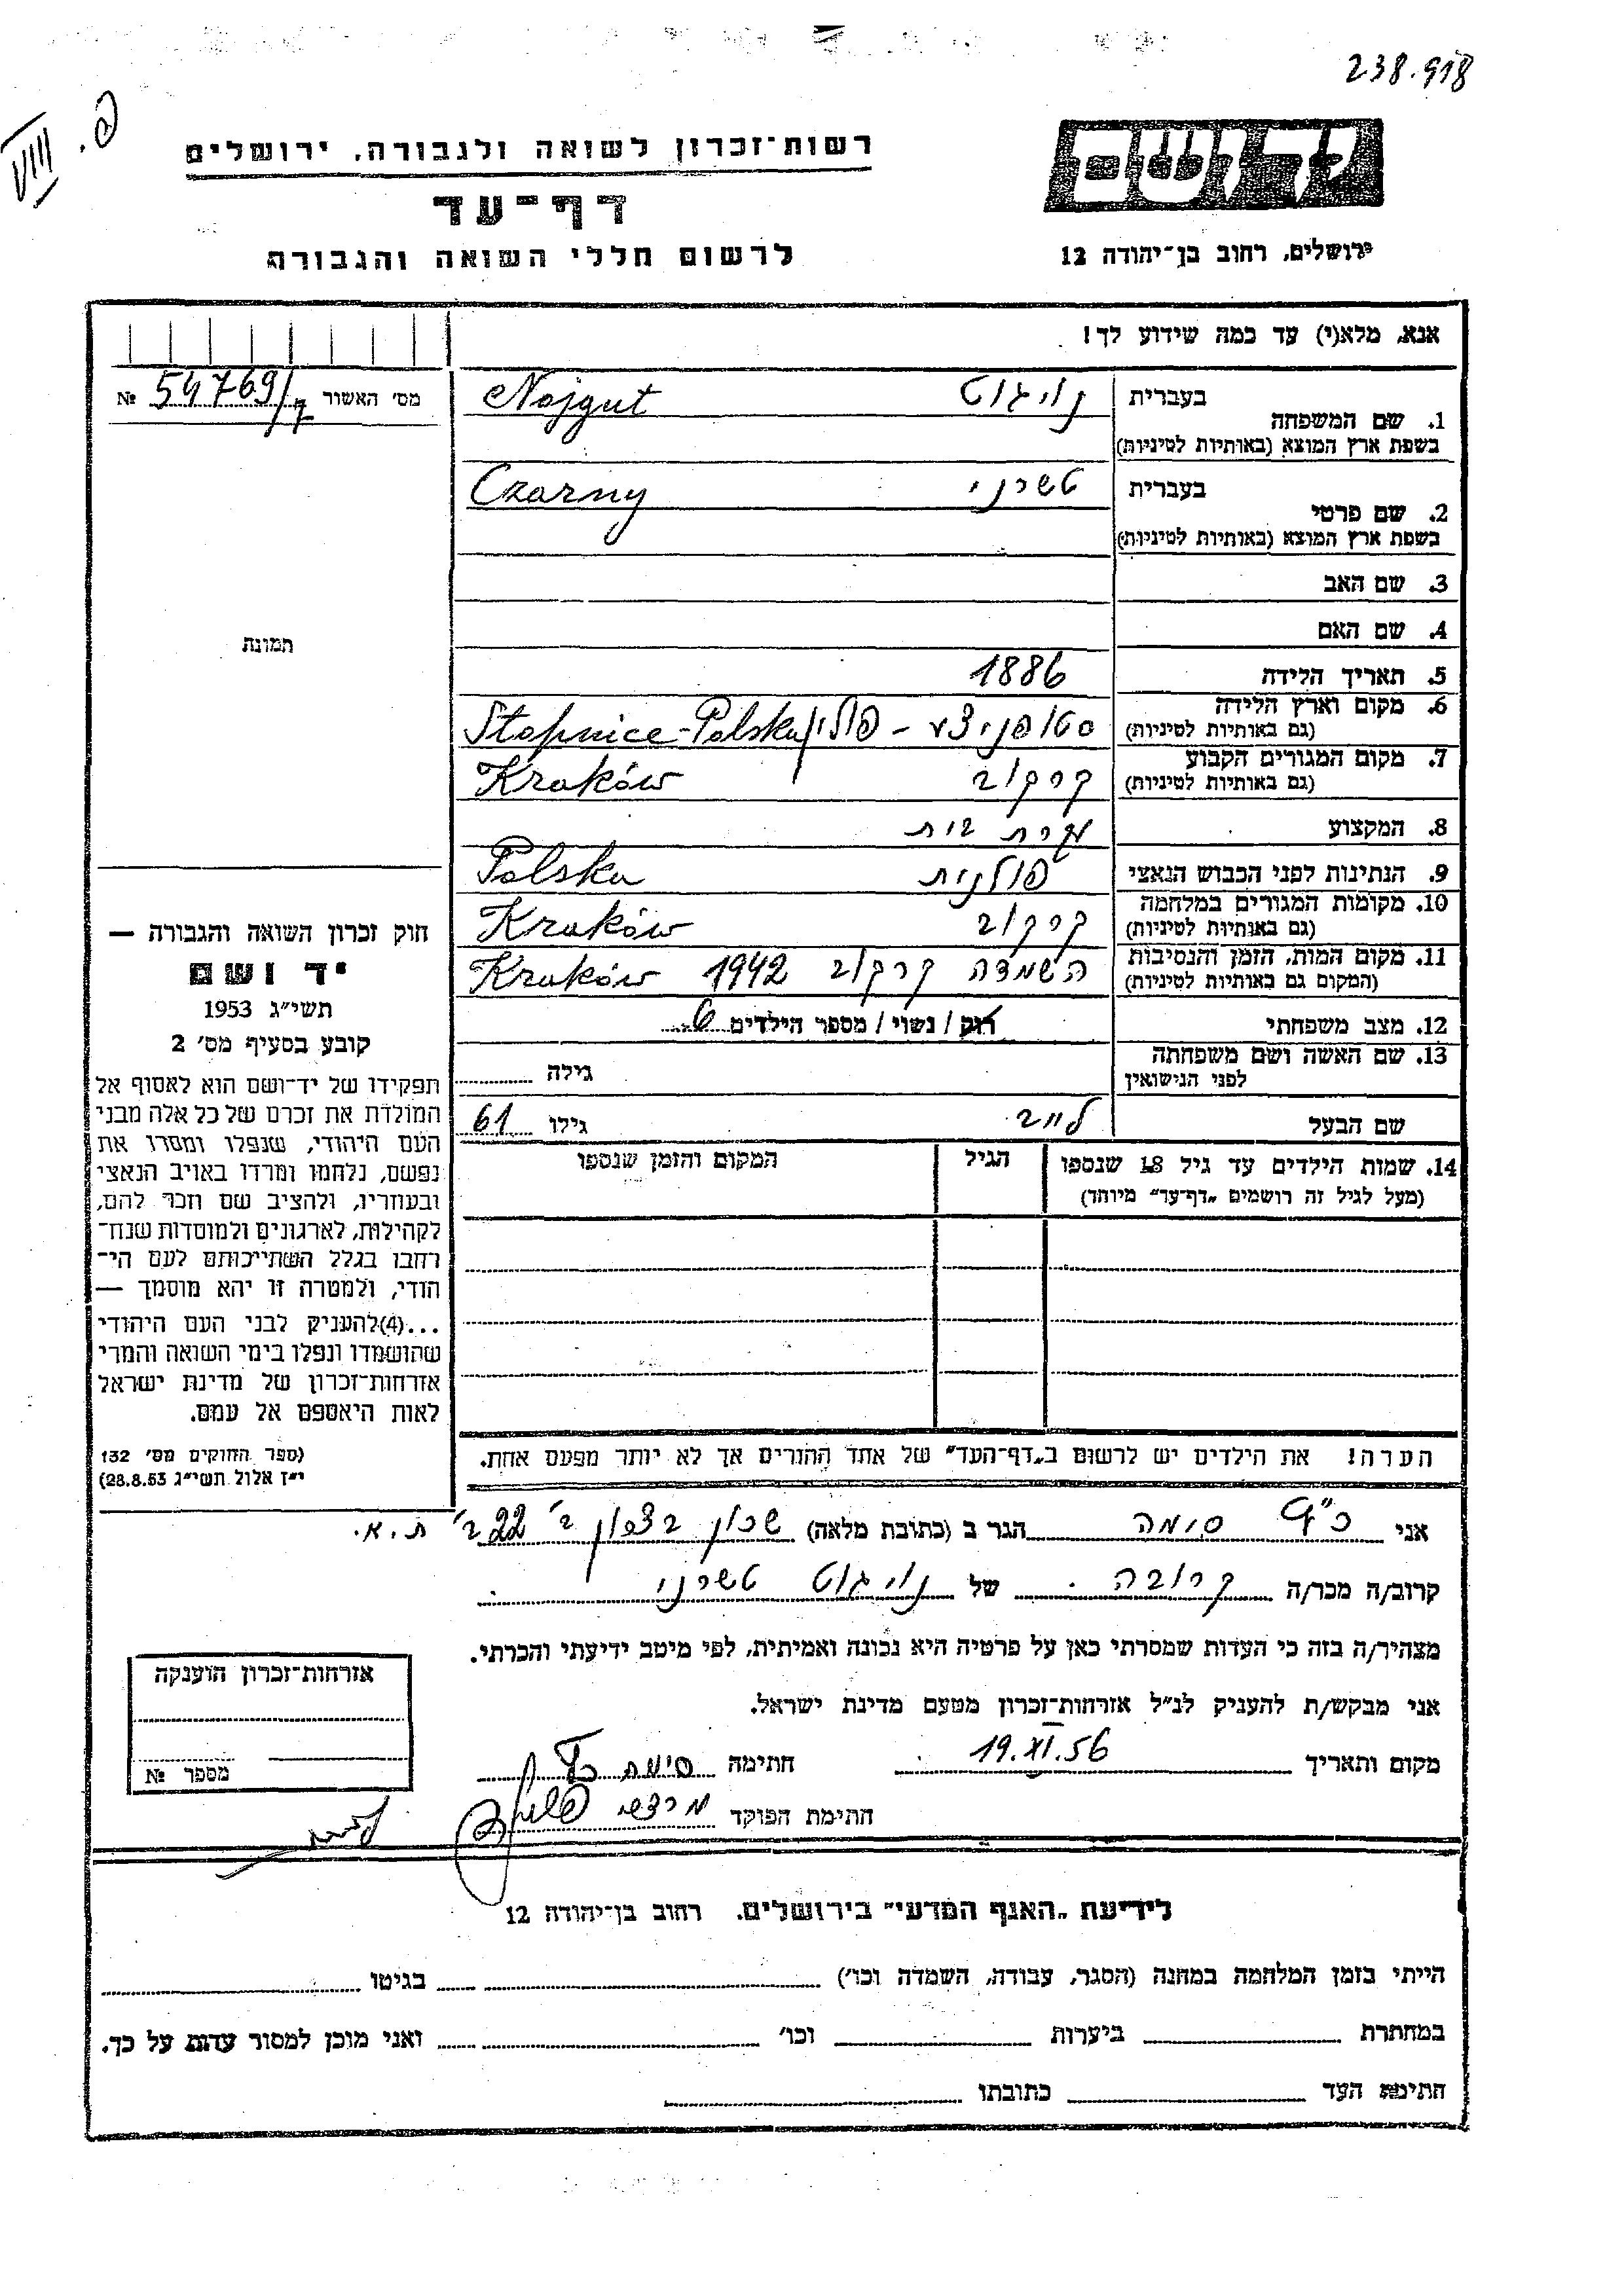 238.918
פ. VIII
יד ושם
רשות־זכרון לשואה ולגבורה, ירושלים
דף־עד
לרשום חללי השואה והגבורה
ירושלים, רחוב בן־יהודה 12
אנא, מלא(י) עד כמה שידוע לך!
מס' האשור 54769/7 №
1. שם המשפחה
בעברית נויגוט Nojgut
בשפת ארץ המוצא (באותיות לטיניות)
2. שם פרטי
בעברית טשרני Czarny
בשפת ארץ המוצא (באותיות לטיניות)
3. שם האב
4. שם האם
5. תאריך הלידה 1886
6. מקום וארץ הלידה סטופניצע - פולין Stopnice-Polska
(גם באותיות לטיניות)
7. מקום המגורים הקבוע קרקוב Kraków
(גם באותיות לטיניות)
8. המקצוע עקרת בית
9. הנתינות לפני הכבוש הנאצי פולנית Polska
10. מקומות המגורים במלחמה קרקוב Kraków
(גם באותיות לטיניות)
11. מקום המות, הזמן והנסיבות השמדה קרקוב 1942 Kraków
(המקום גם באותיות לטיניות)
12. מצב משפחתי רוק / נשוי / מספר הילדים 6
13. שם האשה ושם משפחתה גילה
לפני הנישואין
שם הבעל לייב גילו 61
14. שמות הילדים עד גיל 18 שנספו הגיל המקום והזמן שנספו
(מעל לגיל זה רושמים „דף־עד" מיוחד)
הערה! את הילדים יש לרשום ב„דף־העד" של אחד ההורים אך לא יותר מפעם אחת.
תמונה
חוק זכרון השואה והגבורה —
יד ושם
תשי"ג 1953
קובע בסעיף מס' 2
תפקידו של יד־ושם הוא לאסוף אל
המולדת את זכרם של כל אלה מבני
העם היהודי, שנפלו ומסרו את
נפשם, נלחמו ומרדו באויב הנאצי
ובעוזריו, ולהציב שם וזכר להם,
לקהילות, לארגונים ולמוסדות שנח־
רחבו בגלל השתייכותם לעם הי־
הודי, ולמטרה זו יהא מוסמך —
...(4)להעניק לבני העם היהודי
שהושמדו ונפלו בימי השואה והמרי
אזרחות־זכרון של מדינת ישראל
לאות היאספם אל עמם.
(ספר החוקים מס' 132
י"ז אלול תשי"ג 28.8.53)
אני כ"ץ סימה הגר ב (כתובת מלאה) שכון בצפון ב' 22 ב' ת.א.
קרוב/ה מכר/ה קרובה של נויגוט טשרני
מצהיר/ה בזה כי העדות שמסרתי כאן על פרטיה היא נכונה ואמיתית, לפי מיטב ידיעתי והכרתי.
אני מבקש/ת להעניק לנ"ל אזרחות־זכרון מטעם מדינת ישראל.
מקום ותאריך 19.XI.56 חתימה סימה כץ
חתימת הפוקד
אזרחות־זכרון הוענקה
מספר №
לידיעת „האגף המדעי" בירושלים, רחוב בן־יהודה 12
הייתי בזמן המלחמה במחנה (הסגר, עבודה, השמדה וכו') בגיטו
במחתרת ביערות וכו' ואני מוכן למסור עדות על כך.
חתימת העד כתובתו